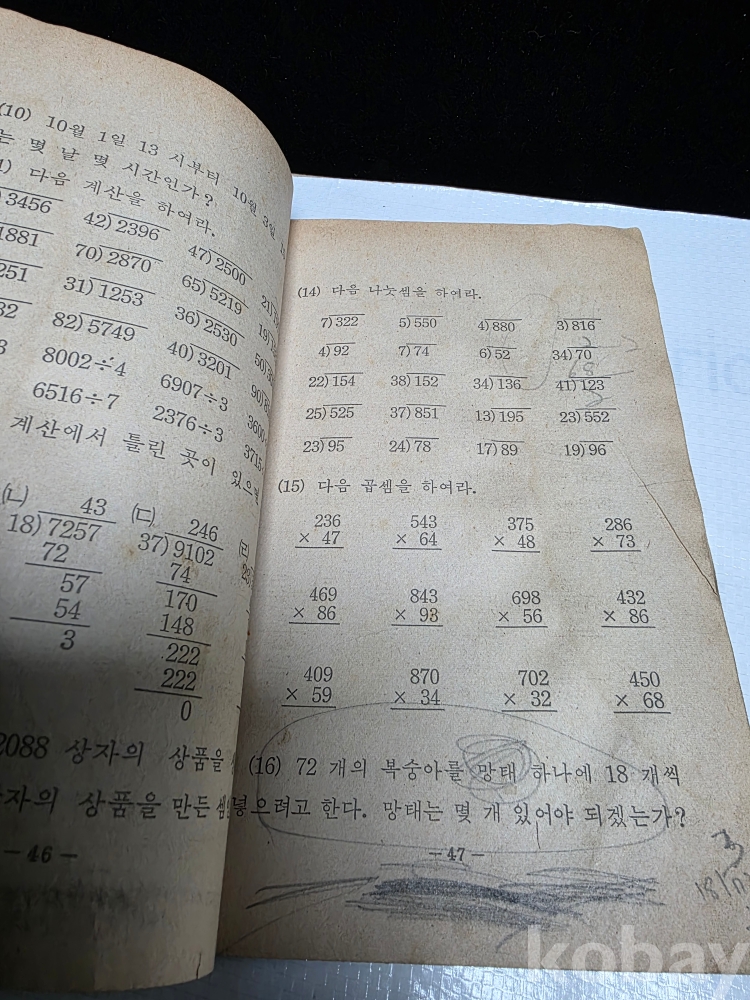 (10) 10월 1일 13 시부터 10월 3일
는 몇 날 몇 시간인가?
다음 계산을 하여라.
3456 42)2396 47)2500
1881 70)2870 65)5219
251 31)1253 36)2530
32 82)5749 40)3201
8002÷4 6907÷3
6516÷7 2376÷3
계산에서 틀린 곳이 있으면
(ㄴ) 43
18)7257
72
57
54
3
(ㄷ) 246
37)9102
74
170
148
222
222
0
2088 상자의 상품을
상자의 상품을 만든 셈
— 46 —
(14) 다음 나눗셈을 하여라.
7)322 5)550 4)880 3)816
4)92 7)74 6)52 34)70
22)154 38)152 34)136 41)123
25)525 37)851 13)195 23)552
23)95 24)78 17)89 19)96
(15) 다음 곱셈을 하여라.
236 543 375 286
× 47 × 64 × 48 × 73
469 843 698 432
× 86 × 93 × 56 × 86
409 870 702 450
× 59 × 34 × 32 × 68
(16) 72 개의 복숭아를 망태 하나에 18 개씩
넣으려고 한다. 망태는 몇 개 있어야 되겠는가?
— 47 —
kobay